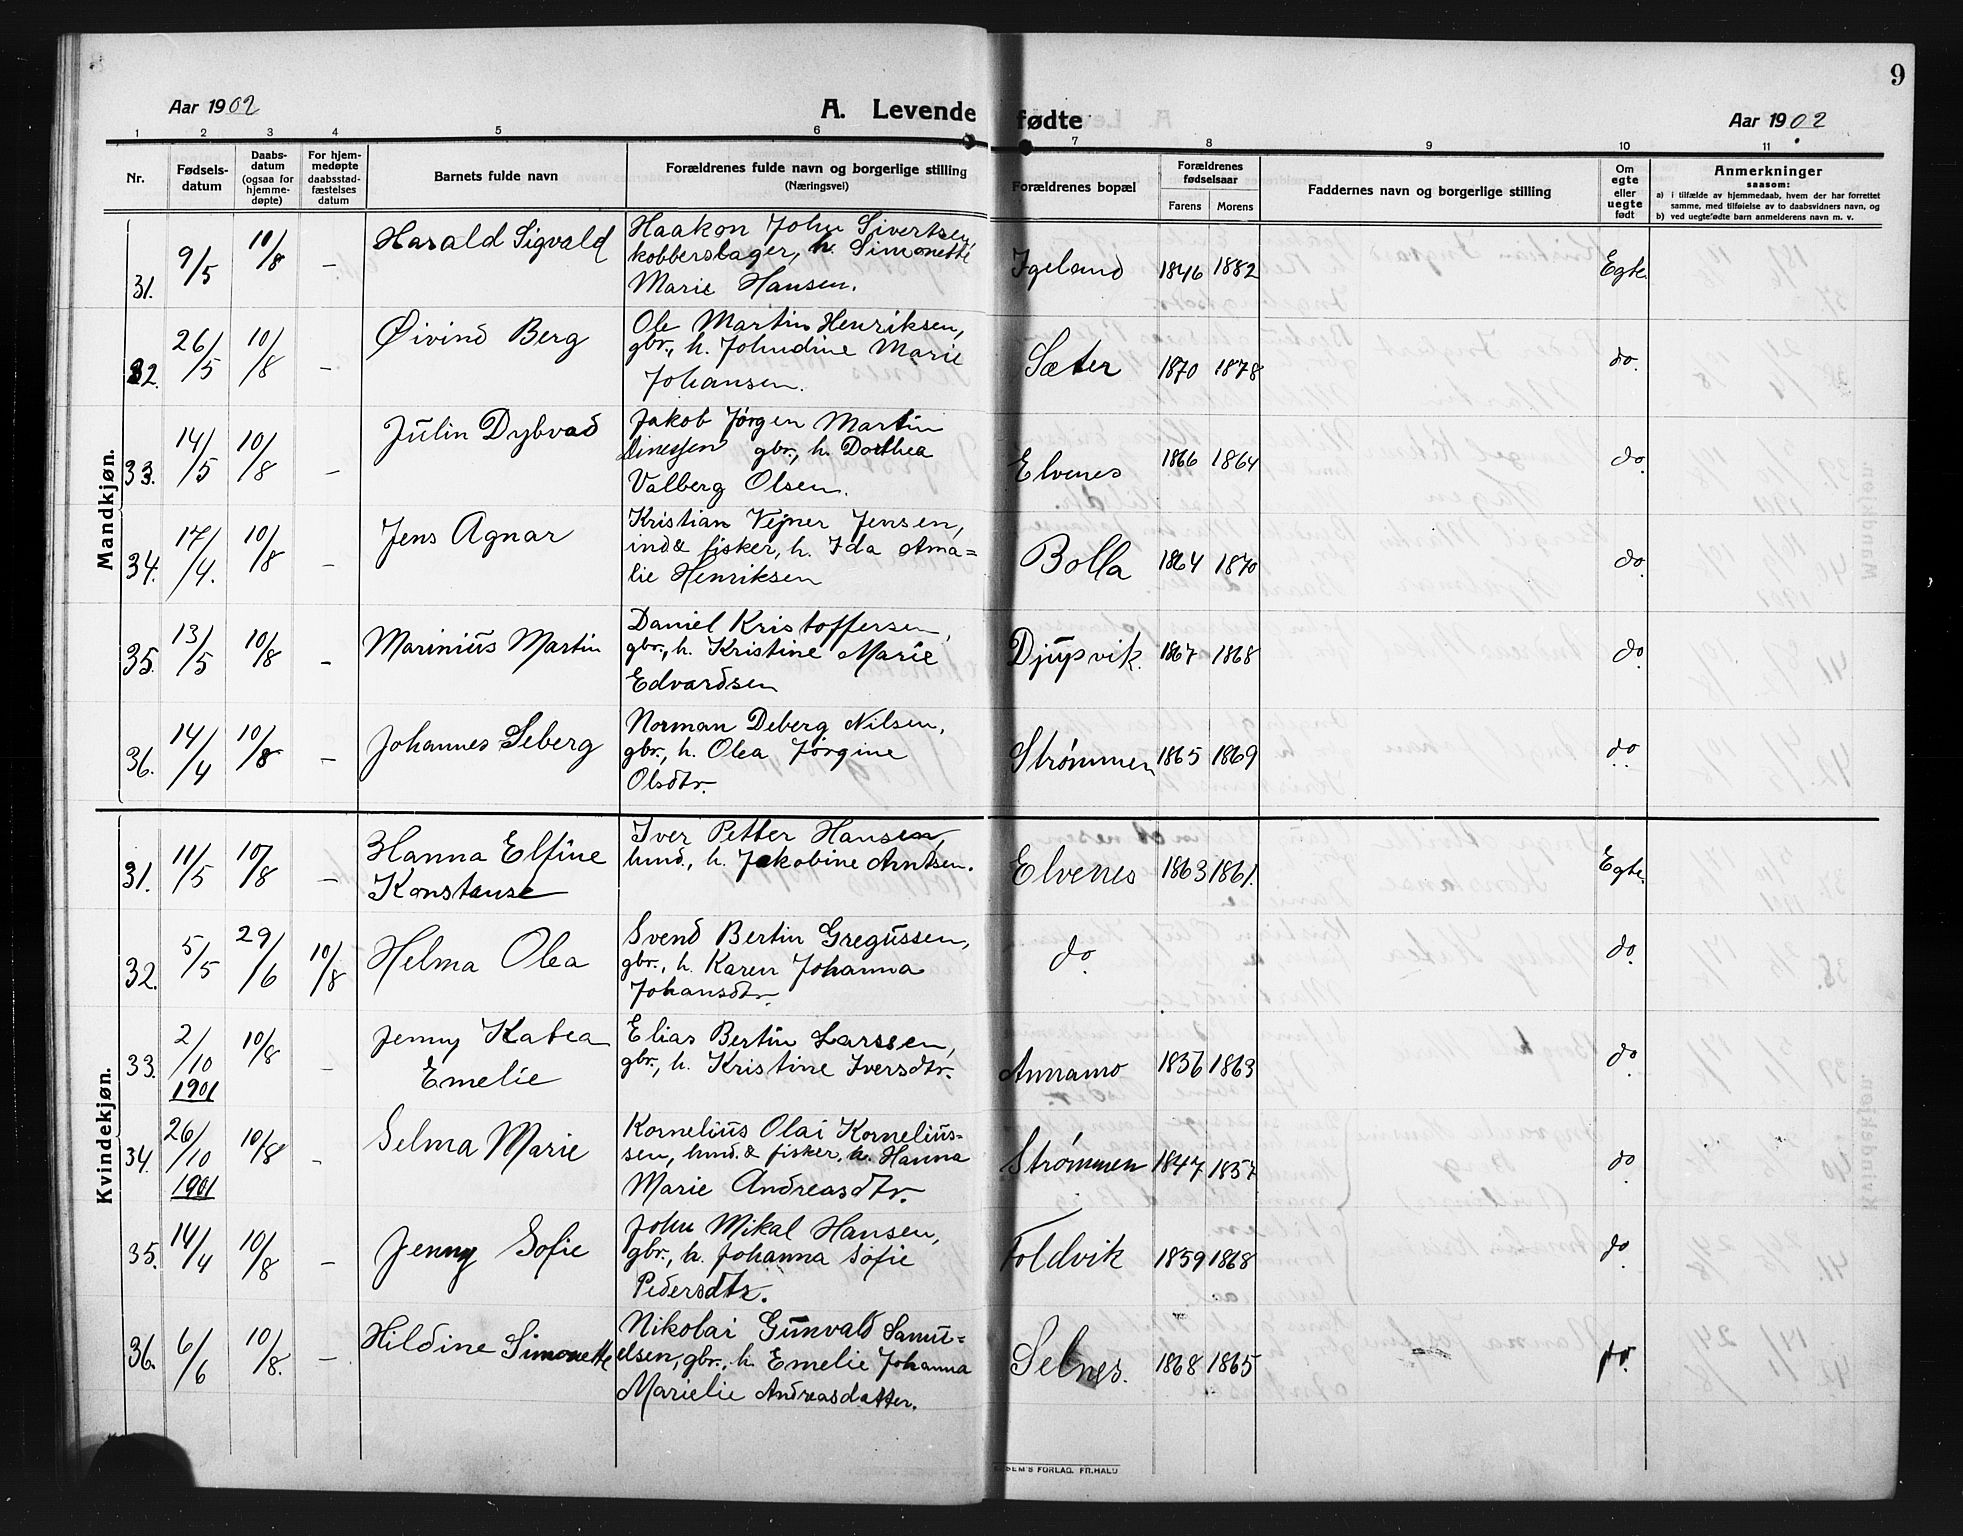 9
Aar 1902
A. Levende fødte
Aar 1902
1 2 3 4 5 6 7 8 9 10 11
Nr.
Fødsels-
datum
Daabs-
datum
(ogsaa for
hjemme-
døpte)
For hjem-
medøpte
daabsstad-
fæstelses
datum
Barnets fulde navn
Forældrenes fulde navn og borgerlige stilling
(Næringsvei)
Forældrenes bopæl
Forældrenes
fødselsaar
Farens Morens
Faddernes navn og borgerlige stilling
Om
egte
eller
uegte
født
Anmerkninger
saasom:
a) i tilfælde av hjemmedaab, hvem der har forrettet
samme, med tilføielse av to daabsvidners navn, og
b) ved uegtefødte barn anmelderens navn m. v.
Mandkjøn.
31. 9/5 10/8 – Harald Sigvald
Haakon John Sivertsen,
kobberslager, h. Simonette
Marie Hansen.
Igeland 1846 1882 Egte.
32. 26/5 10/8 – Øivind Berg
Ole Martin Henriksen,
gbr., h. Johndine Marie
Johansen.
Sæter 1870 1878 do.
33. 14/5 10/8 – Julin Dybvad
Jakob Jørgen Martin
Dinessen gbr., h. Dorthea
Valberg Olsen.
Elvenes 1866 1864 do.
34. 17/4. 10/8 – Jens Agnar
Kristian Vejner Jensen,
ind& fisker, h. Ida Ama=
lie Henriksen
Bolla 1864 1870 do.
35. 13/5 10/8 – Marinius Martin
Daniel Kristoffersen,
gbr., h. Kristine Marie
Edvardsen
Djupvik. 1867 1868 do.
36. 14/4 10/8 – Johannes Seberg
Norman Deberg Nilsen,
gbr., h. Olea Jørgine
Olsdtr.
Strømmen 1865 1869 do.
Kvindekjøn.
31. 11/5 10/8 – Hanna Elfine
Konstanse
Iver Petter Hansen,
hmd., h. Jakobine Arntsen.
Elvenes 1863 1861. Egte.
32. 5/5 29/6 10/8 Helma Olea
Svend Bertin Gregussen,
gbr., h. Karen Johanna
Johansdtr.
do. do.
33. 2/10 1901 10/8 – Jenny Katea
Emelie
Elias Bertin Larssen,
gbr., h. Kristine Iversdtr.
Annamo 1856 1863 do.
34. 26/10 1901 10/8 – Selma Marie
Kornelius Olai Kornelius=
sen, hmd. & fisker, h. Hanna
Marie Andreasdtr.
Strømmen 1847 1857 do.
35. 14/4 10/8 – Jenny Sofie
John Mikal Hansen,
gbr., h. Johanna Sofie
Pedersdtr.
Foldvik 1859 1868 do.
36. 6/6 10/8. – Hildine Simonette
Nikolai Gunvald Samu=
elsen, gbr., h. Emelie Johanna
Marielie Andreasdatter.
Selnes. 1868 1865 do.
SEM'S FORLAG. FR. HALD